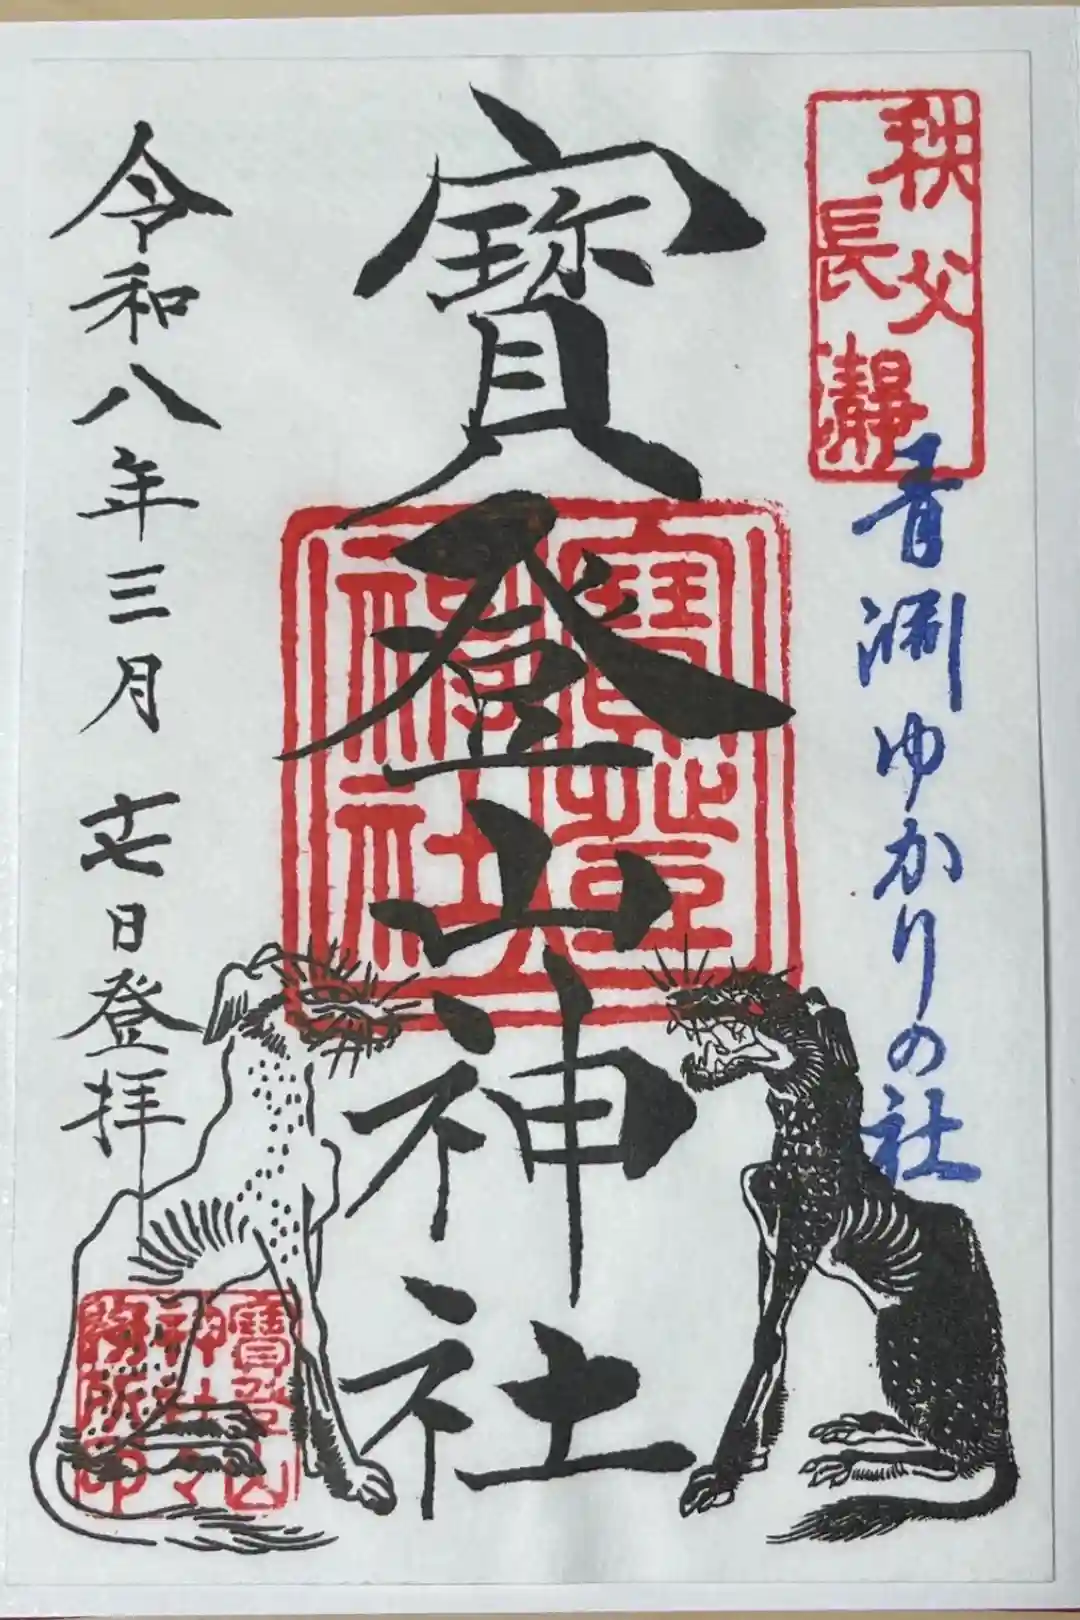 秩父
長瀞
青淵ゆかりの社
寶登山神社
寶登山
神社
令和八年三月十七日登拝
寶登山
神社々
務所印